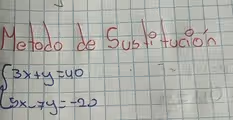 Metodo de Sustitución
3x+y=40
5x-7y=-20